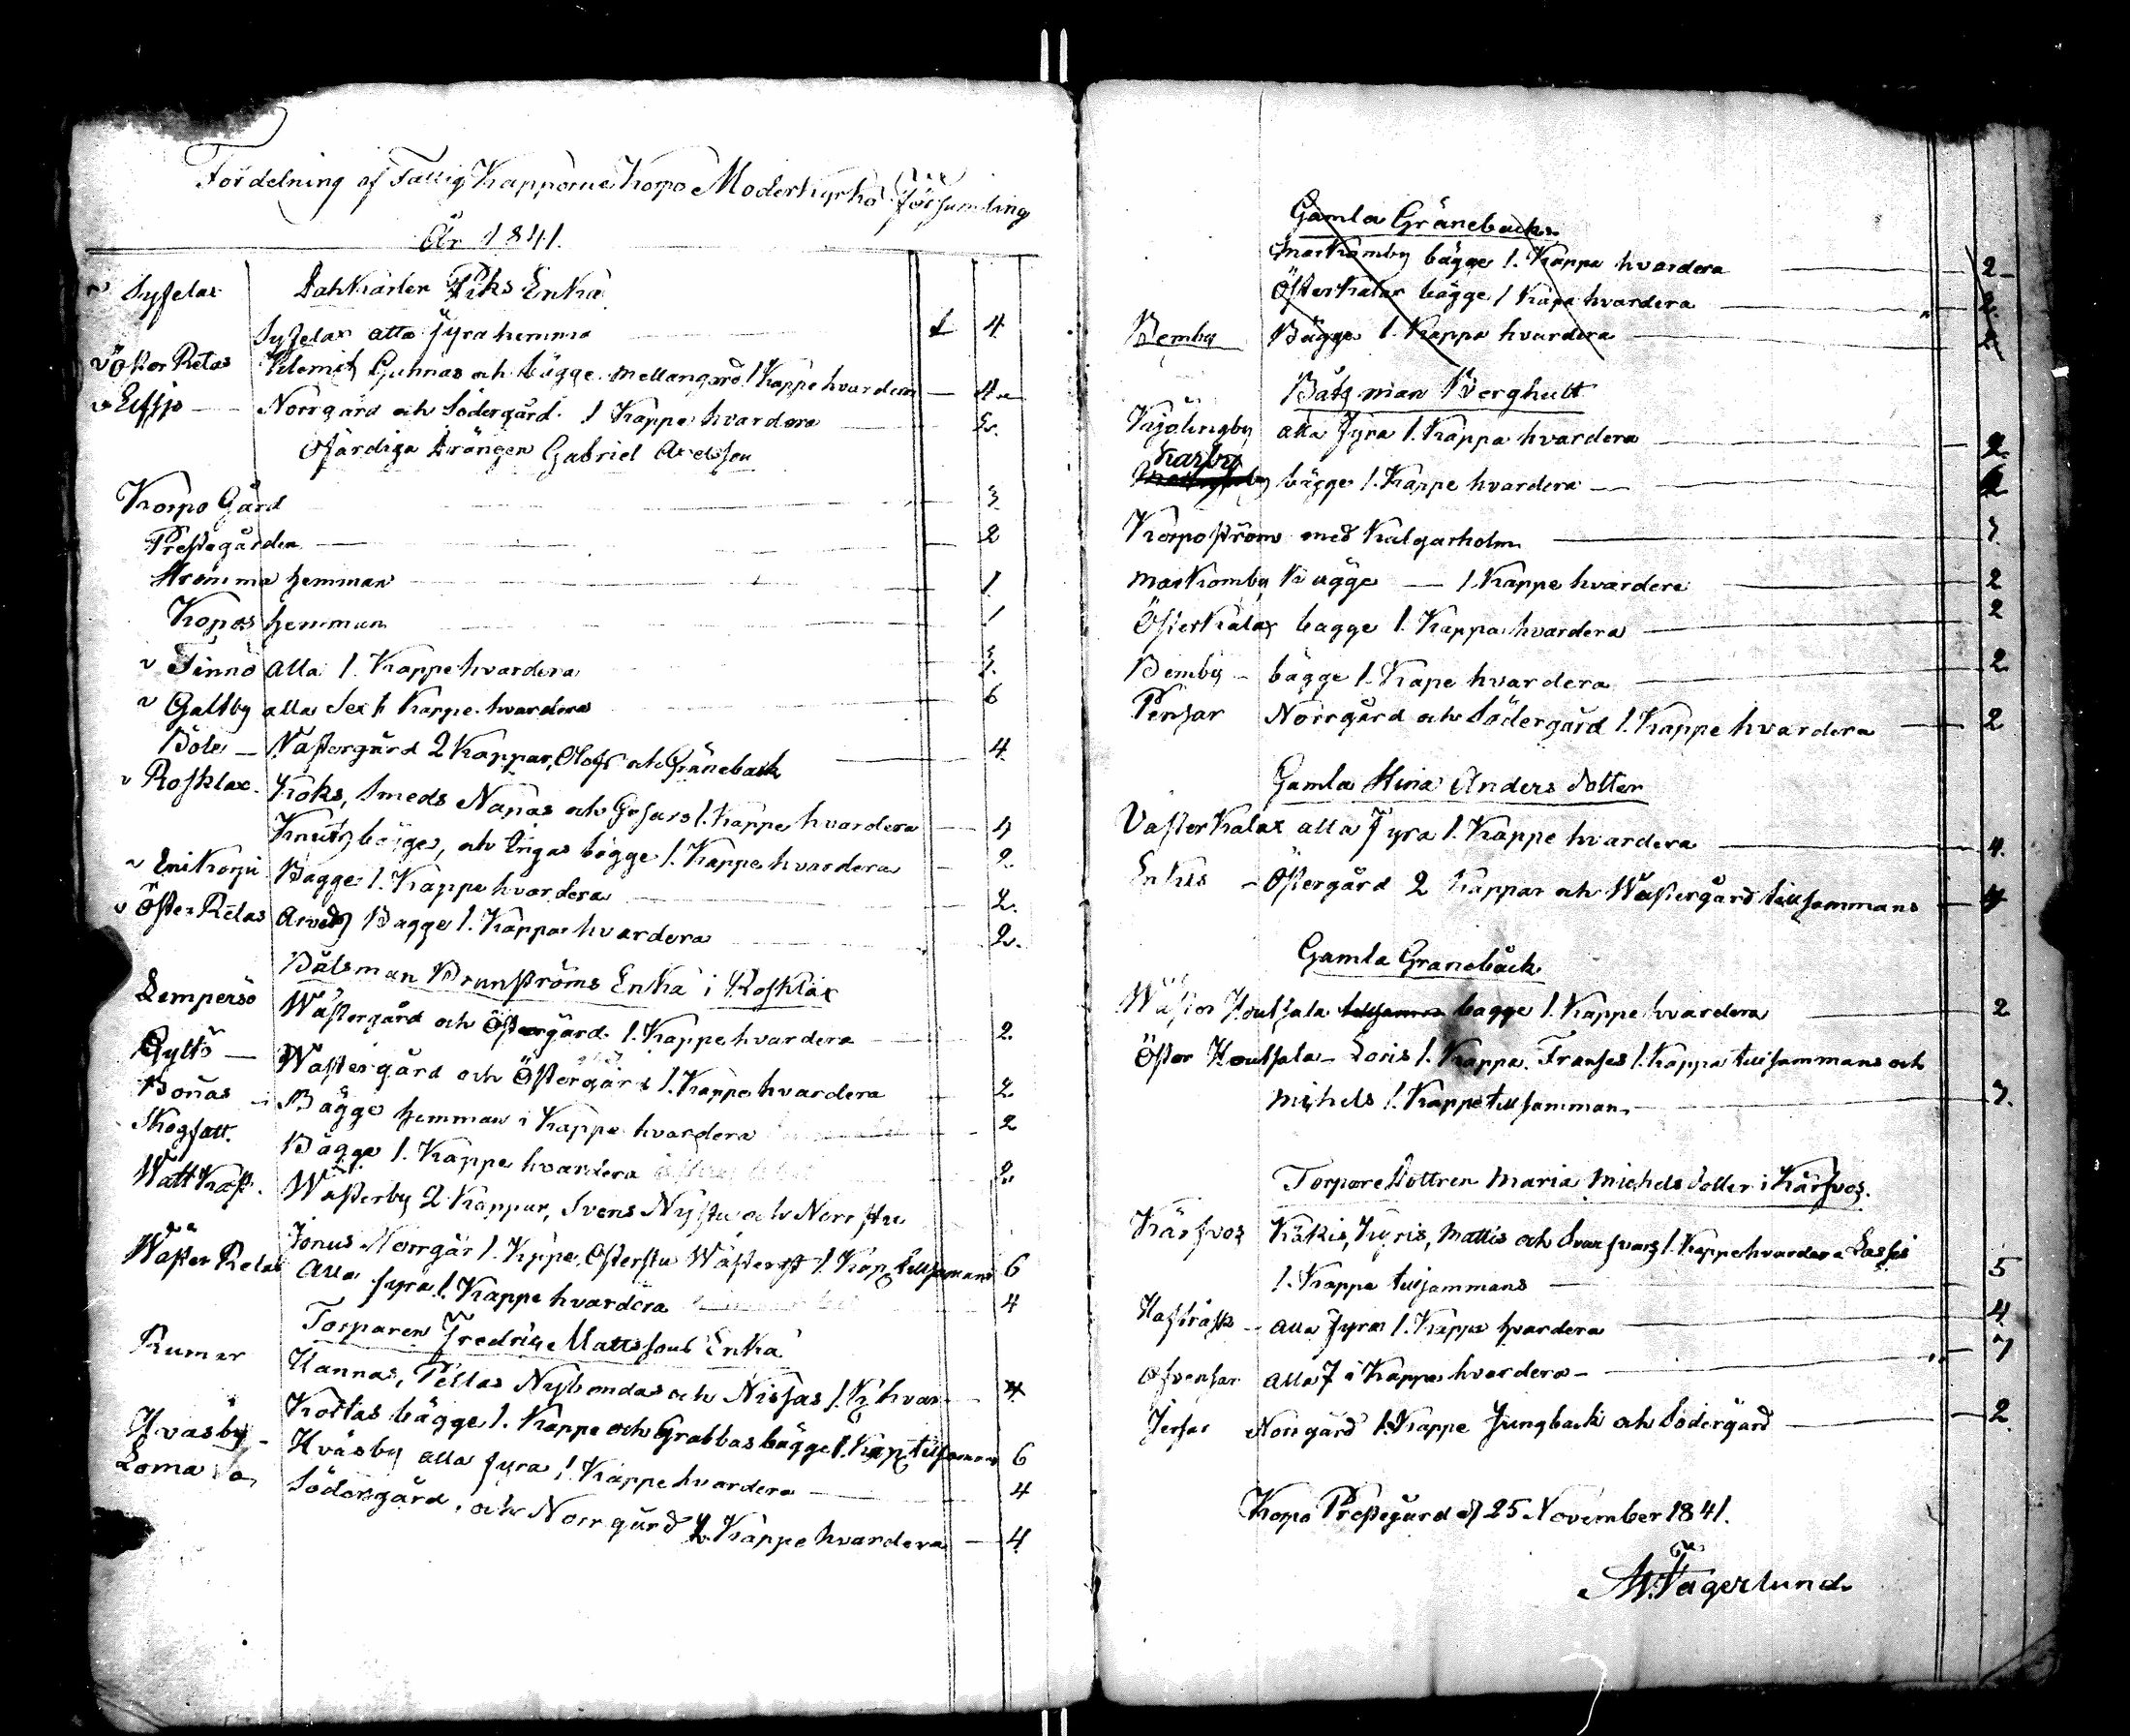 Fördelning af Fattig Kapparne Korpo Moderkyrko församling
År 1841.
Syfelax Enka
Syfelax alla fyra hemma 1 4
v Öster Retas och bägge mellangård 1 Kappe hvardera 4
v Elfsjö Norrgård och Södergård 1 Kappe hvardera 2.
Ofärdiga Drängen Gabriel Axelsson
Korpo Gård 3
Prestegården 2
Strömma hemman 1
Kopas hemman 1
v Finnö alla 1. Kappe hvardera 3.
v Galtby alla Sex 1 Kappe hvardera 6
Böle Västergård 2 Kappar, Olofs och Gräneback 4
v Rosklax Koks, Smeds Nanas och 1. Kappe hvardera 4
Knuts bägge, och Ingas bägge 1. Kappe hvardera 2.
v Enikorpi Bägge 1. Kappe hvardera 2.
v Öster Retas Arvids Bagge 1. Kappe hvardera 2.
Båtsman Brunströms Enka i Rosklax
Lempersö Wästergård och Östergård 1. Kappe hvardera 2.
Gyltö Wästergård och Östergård 1. Kappe hvardera 2
Bonäs Bägge hemman 1 Kappe hvardera 2
Skogsatt. Bägge 1. Kappe hvardera 2
Wattkast. Wästerby 2 Kappar, Svens Nystu och Norrstu
Jonus Norrgår 1. Kappe, Österstu Wästerst 1. Kap tillsamans 6
Wäster Retas Alla fyra 1. Kappe hvardera 4
Torparen Fredric Mattssons Enka
Rumar Hannas, Pellas Nybondas och Nissas 1. K hvar 4
Kottas bägge 1. Kappe och Grabbas bägge 1. Kap tillsamans 6
Hvasby Hväsby alla fyra 1. Kappe hvardera 4
Södergård, och Norrgård 2 Kappe hvardera 4
Gamla Gränebacks
Markomby bägge 1. Kappe hvardera 2
Österkalax bägge 1 Kape hvardera 2.
Bemby Bägge 1 Kappe hvardera 2
Båtsman Berghult
Kyölingby alla fyra 1. Kappa hvardera
Karby bägge 1. Kappe hvardera
Korpoström med Kälgarholm 3
Markomby Bägge 1. Kappe hvardere 2
Österkalax bagge 1. Kappa hvardera 2
Bemby bägge 1. Kape hvardera 2
Pensar Norrgård och Södergård 1. Kappe hvardera 2
Gamla Stina Anders dotter
Väster Kalax alla Fyra 1. Kappe hvardera 4.
Enkis Östergård 2 Kappar och Wästergård tillsammans 4
Gamla Granebäck
Wäster Houtsala bagge 1. Kappe hvardera 2
Öster Houtsala Loris 1. Kappa. Franses 1. Kappa tillsammans och
Michels 1. Kappe tillsamman 3.
Torpare Dottren Maria Michels dotter i Kärfvos.
Kärfvos Käkis, Kyris, Mattis och 1. Kappe hvardera Lassis
1. Kappe tillsammans 5
alla fyra 1. Kappe hvardera 4
Ofvensar alla 7 1 Kappe hvardera 7
Jersar Norrgård 1. Kappe Jungback och Södergård 2
Korpo Prestegård d 25 November 1841.
Fagerlund